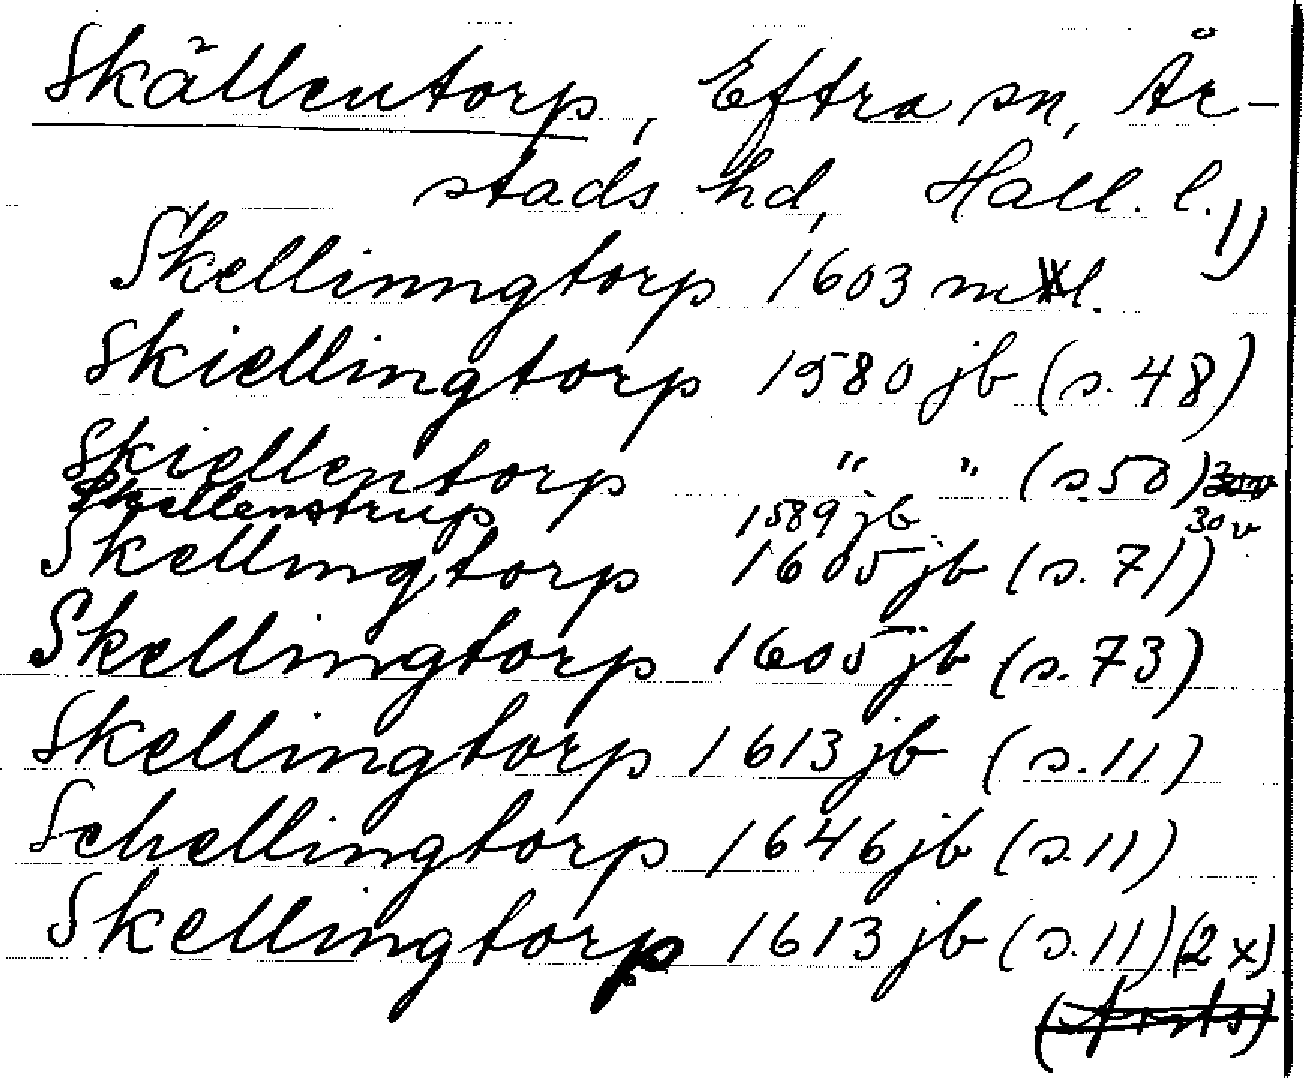 Skällentorp, Eftra sn, År-
stads hd, Hall. l. 1)
Skellinngtorp 1603 mtl.
Skiellingtorp 1580 jb (s. 48)
Skiellentorp " " (s. 50)
Skellenstrup 1589 jb 30 v
Skellingtorp 1605 jb (s. 71)
Skellingtorp 1605 jb (s. 73)
Skellingtorp 1613 jb (s. 11)
Schellingtorp 1646 jb (s. 11)
Skellingtorp 1613 jb (s. 11) (2 x)